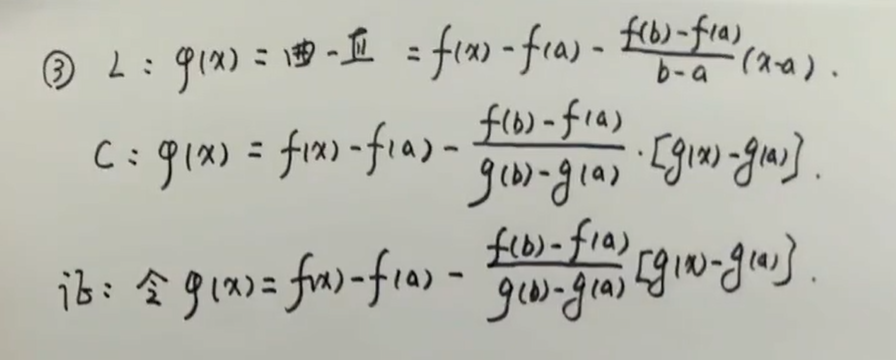 ③ L: φ(x) = 曲 - 直 = f(x) - f(a) - \frac{f(b)-f(a)}{b-a}(x-a).
C: φ(x) = f(x) - f(a) - \frac{f(b)-f(a)}{g(b)-g(a)}·[g(x)-g(a)].
证: 令 φ(x) = f(x) - f(a) - \frac{f(b)-f(a)}{g(b)-g(a)}[g(x)-g(a)].